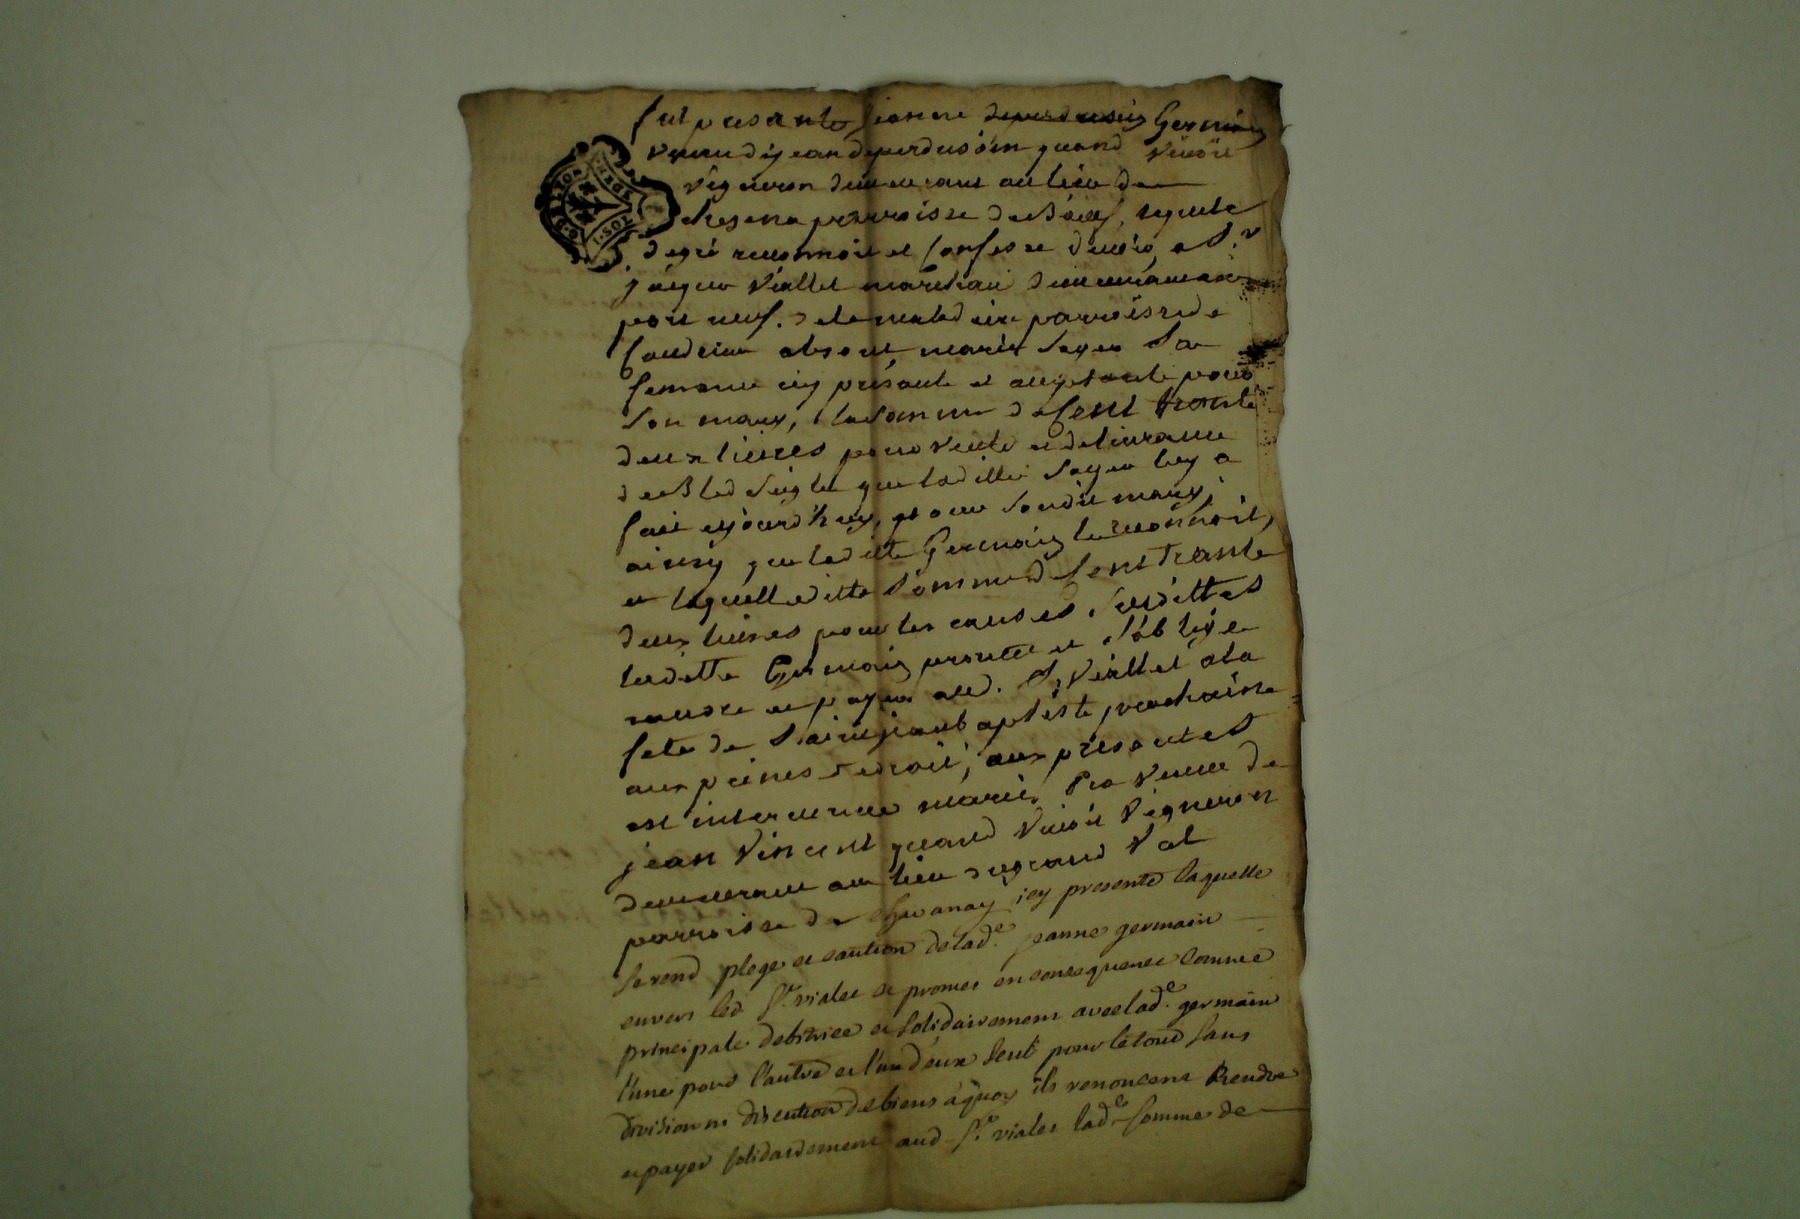 fut presante jeanne deperdusein Germain
veuve de jean deperdussein quand vivoit
vigneron demeurant au lieu de
paroisse de Bœuf, laquelle
de gré reconnoit et confesse devoir a Sr
jaque viallet marchand demeurant
port neuf. de la maladiere parroisse de
absent marie sa
femme icy présante et aceptante pour
son mary, la somme de cent trante
deux livres pour vente et delivrance
de Bled seigle que laditte luy a
fait ajourd'huy, pour sondit mary,
ainsy que laditte Germain le reconnoit,
et laquelle ditte somme de cent trante
deux livres pour les causes susdittes
laditte Germain promet et s'oblige
randre et payer aud. Sr viallet a la
fete de Saint jean baptiste prochaine
aux peines de droit, aux présantes
est intervenue marie veuve de
jean vincent quand vivoit vigneron
demeurant au lieu de grand val
parroisse de chavanay icy presente laquelle
se rend plege et caution de lade. jeanne germain
envers led Sr. vialet et promet en consequence comme
principale debitrice et solidairement avec lade. germain
l'une pour l'autre et l'une d'eux seul pour le tout sans
division ni discution de biens a quoy ils renoncent Rendre
et payer solidairement aud Sr. vialet lade somme de